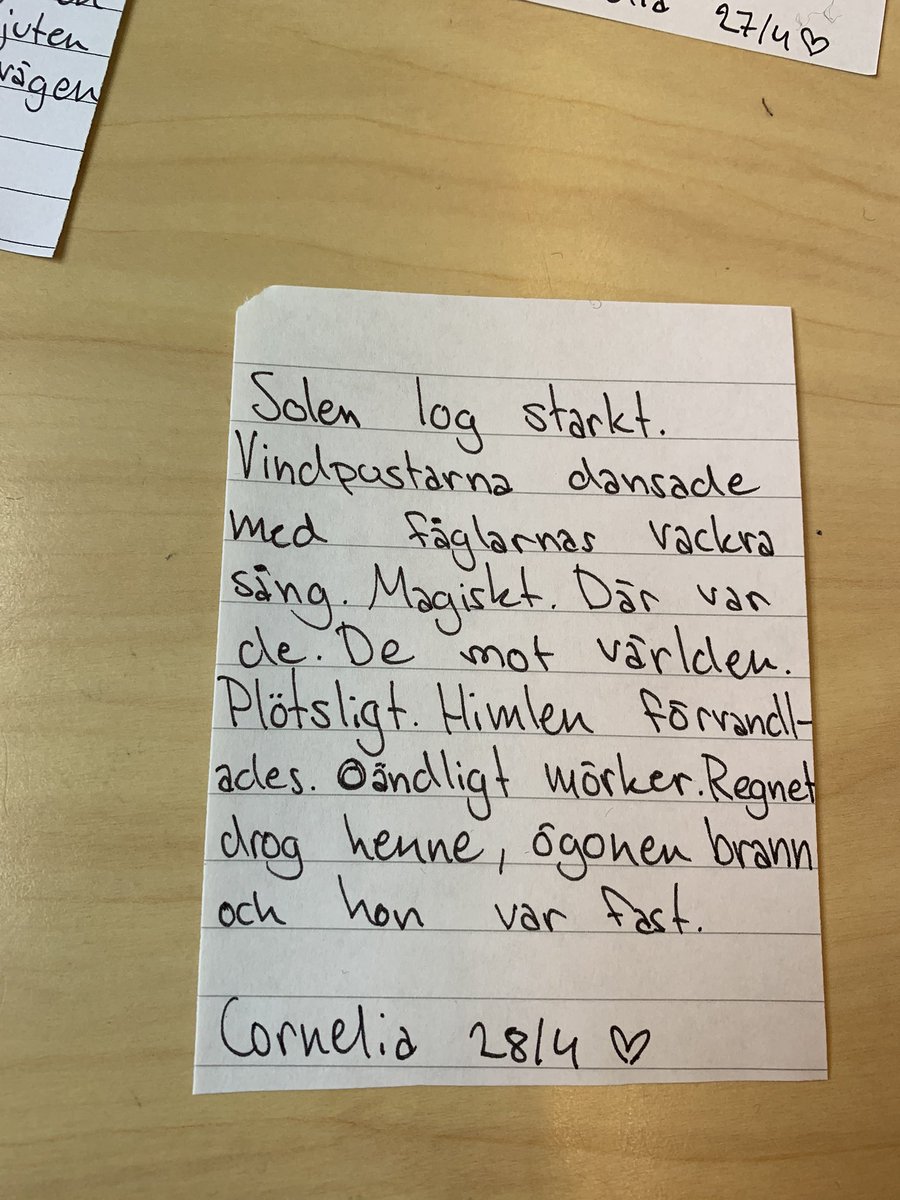 juten
vägen
27/4 ♡
Solen log starkt.
Vindpustarna dansade
med fåglarnas vackra
sång. Magiskt. Där var
de. De mot världen.
Plötsligt. Himlen förvandl-
ades. Oändligt mörker. Regnet
drog henne, ögonen brann
och hon var fast.
Cornelia 28/4 ♡